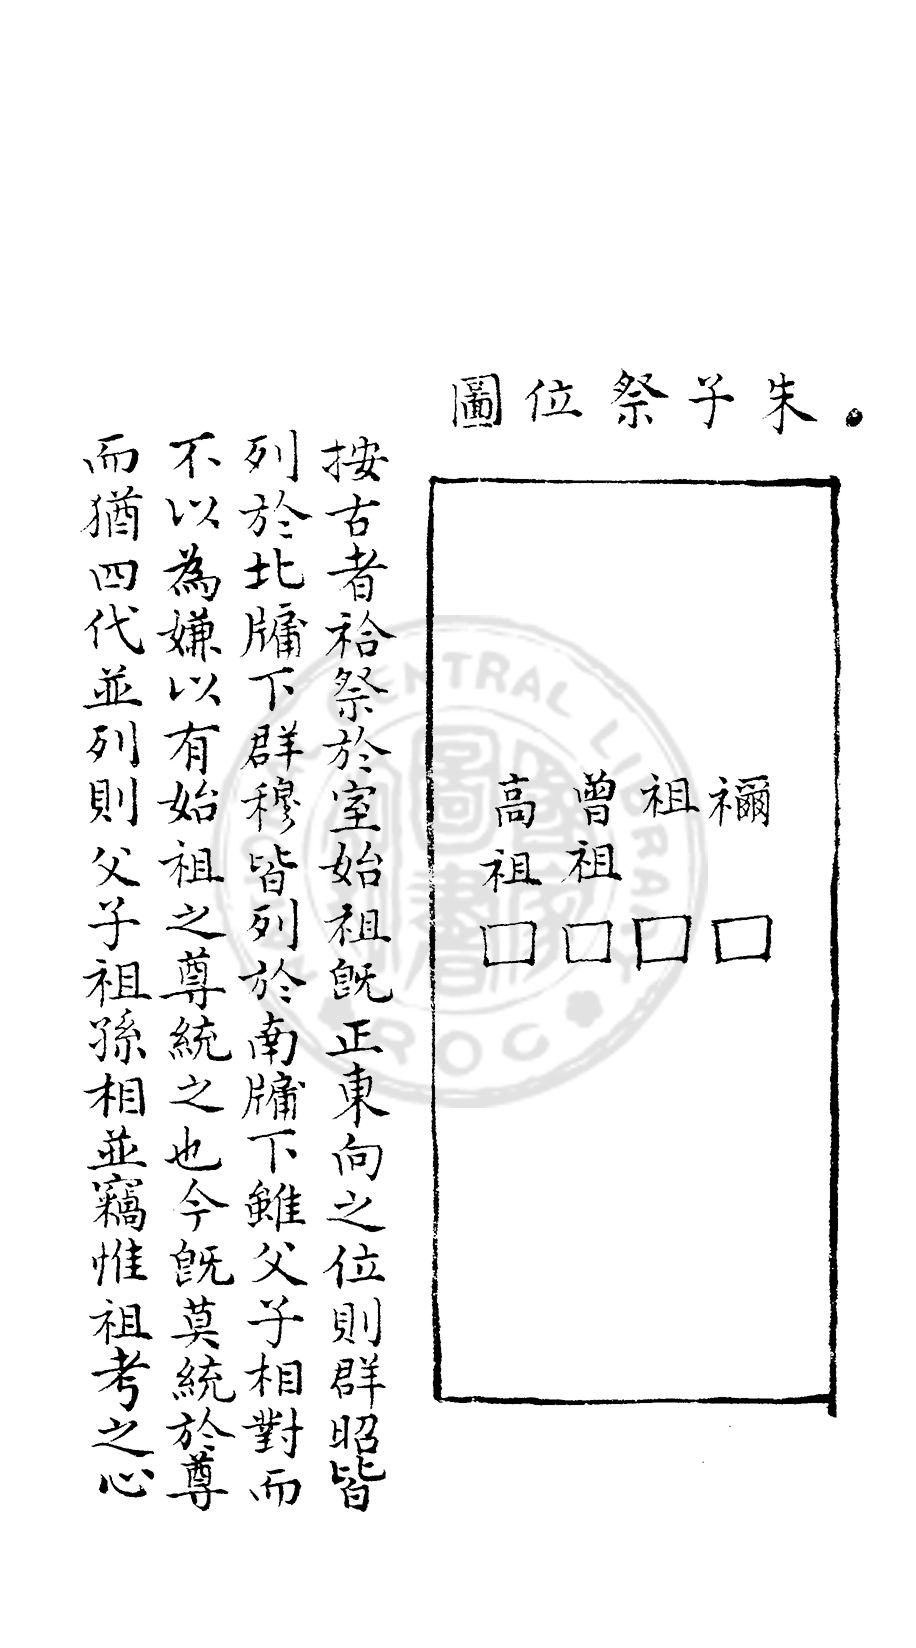 朱子祭位圖
禰
祖
曾祖
高祖
按古者祫祭於室始祖既正東向之位則群昭皆
列於北牖下群穆皆列於南牖下雖父子相對而
不以為嫌以有始祖之尊統之也今既莫統於尊
而猶四代並列則父子祖孫相並竊惟祖考之心
CENTRAL LIBRARY
ROC